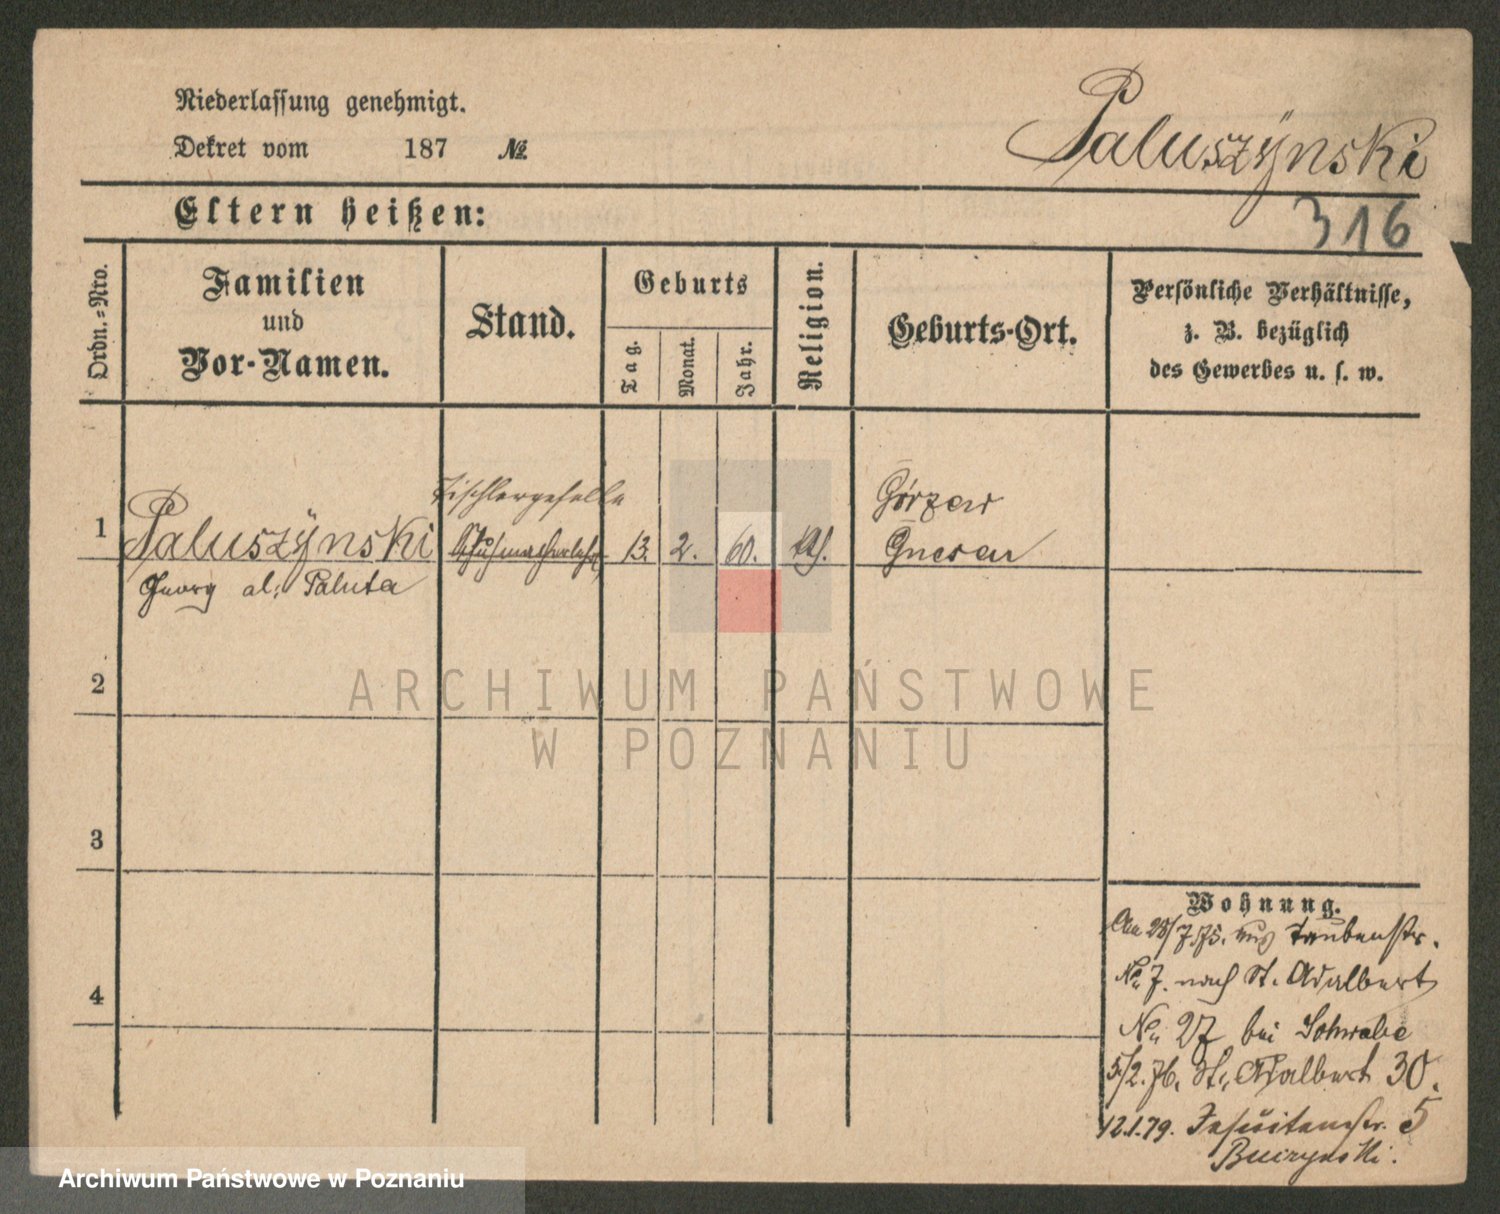 Niederlassung genehmigt.
Dekret vom 187 №
Paluszÿnski
316
Eltern heißen:
Ordn.-Nro.
Familien
und
Vor-Namen.
Stand.
Geburts
Tag.
Monat.
Jahr.
Religion.
Geburts-Ort.
Persönliche Verhältnisse,
z. B. bezüglich
des Gewerbes u. s. w.
1
Paluszÿnski
Georg al: Paluta
Tischlergeselle
Schuhmacherlehrl
13.
2.
60.
Gnesen
2
3
4
Wohnung.
Am 28/7.75. aus Taubenstr.
No 7. nach St. Adalbert
No 27 bei Schwabe
5/2.76. St. Adalbert 30.
12.1.79. Jesuitenstr. 5
ARCHIWUM PAŃSTWOWE
W POZNANIU
Archiwum Państwowe w Poznaniu